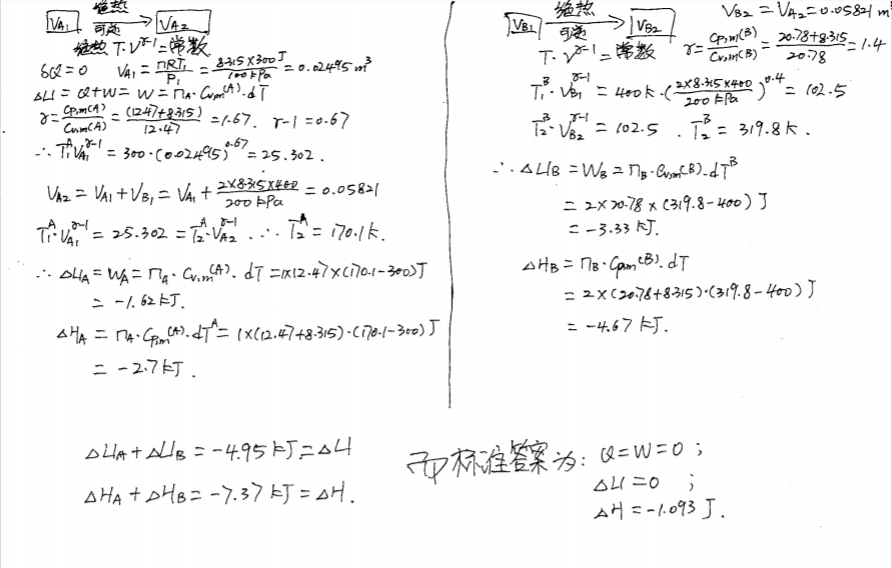 V_A1 绝热 可逆 V_A2
绝热 T·V^γ-1 = 常数
δQ=0 V_A1 = nRT₁/P₁ = 8.315×300J/100kPa = 0.02495 m³
ΔU = Q+W = W = n_A·C_v,m(A)·dT
γ = C_p,m(A)/C_v,m(A) = (12.47+8.315)/12.47 = 1.67. γ-1=0.67
∴ T₁^A V_A1^γ-1 = 300·(0.02495)^0.67 = 25.302.
V_A2 = V_A1 + V_B1 = V_A1 + 2×8.315×400/200kPa = 0.05821
T₁^A·V_A1^γ-1 = 25.302 = T₂^A·V_A2^γ-1 ∴ T₂^A = 170.1k.
∴ ΔU_A = W_A = n_A·C_v,m(A)·dT = 1×12.47×(170.1-300)J
= -1.62kJ.
ΔH_A = n_A·C_p,m(A)·dT^A = 1×(12.47+8.315)·(170.1-300)J
= -2.7kJ.
V_B1 绝热 可逆 V_B2
V_B2 = V_A2 = 0.05821 m
T·V^γ-1 = 常数 γ = C_p,m(B)/C_v,m(B) = 20.78+8.315/20.78 = 1.4
T₁^B·V_B1^γ-1 = 400k·(2×8.315×400/200kPa)^0.4 = 102.5
T₂^B·V_B2^γ-1 = 102.5. T₂^B = 319.8k.
∴ ΔU_B = W_B = n_B·C_v,m(B)·dT^B
= 2×20.78×(319.8-400)J
= -3.33kJ.
ΔH_B = n_B·C_p,m(B)·dT
= 2×(20.78+8.315)·(319.8-400)J
= -4.67kJ.
ΔU_A+ΔU_B = -4.95kJ = ΔU
ΔH_A+ΔH_B = -7.37kJ = ΔH.
而标准答案为: Q=W=0;
ΔU=0;
ΔH=-1.093J.